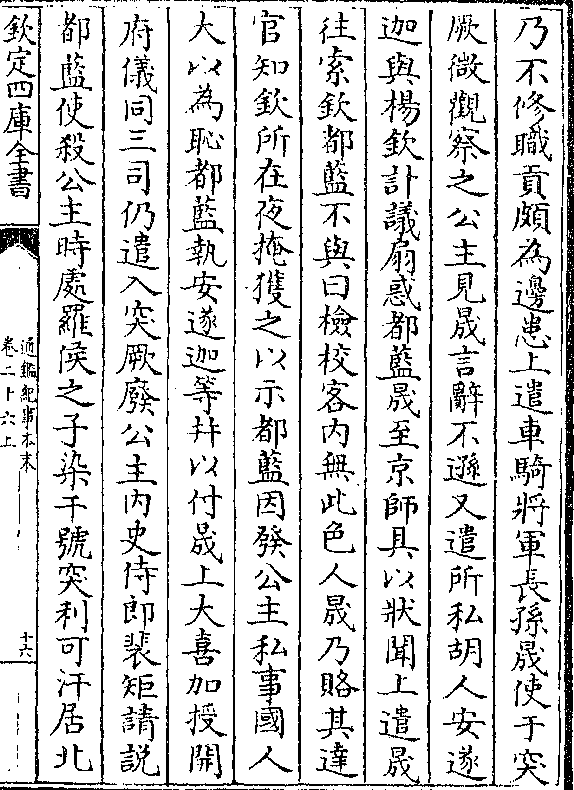 乃不修職貢頗為邊患上遣車騎將軍長孫晟使于突
厥微觀察之公主見晟言辭不遜又遣所私胡人安遂
迦與楊欽計議扇惑都藍晟至京師具以狀聞上遣晟
往索欽都藍不與曰檢校客内無此色人晟乃賂其達
官知欽所在夜掩獲之以示都藍因發公主私事國人
大以為恥都藍執安遂迦等幷以付晟上大喜加授開
府儀同三司仍遣入突厥廢公主内史侍郎裴矩請説
都藍使殺公主時處羅侯之子染干號突利可汗居北
欽定四庫全書
通鑑紀事本末
卷二十六上
十六